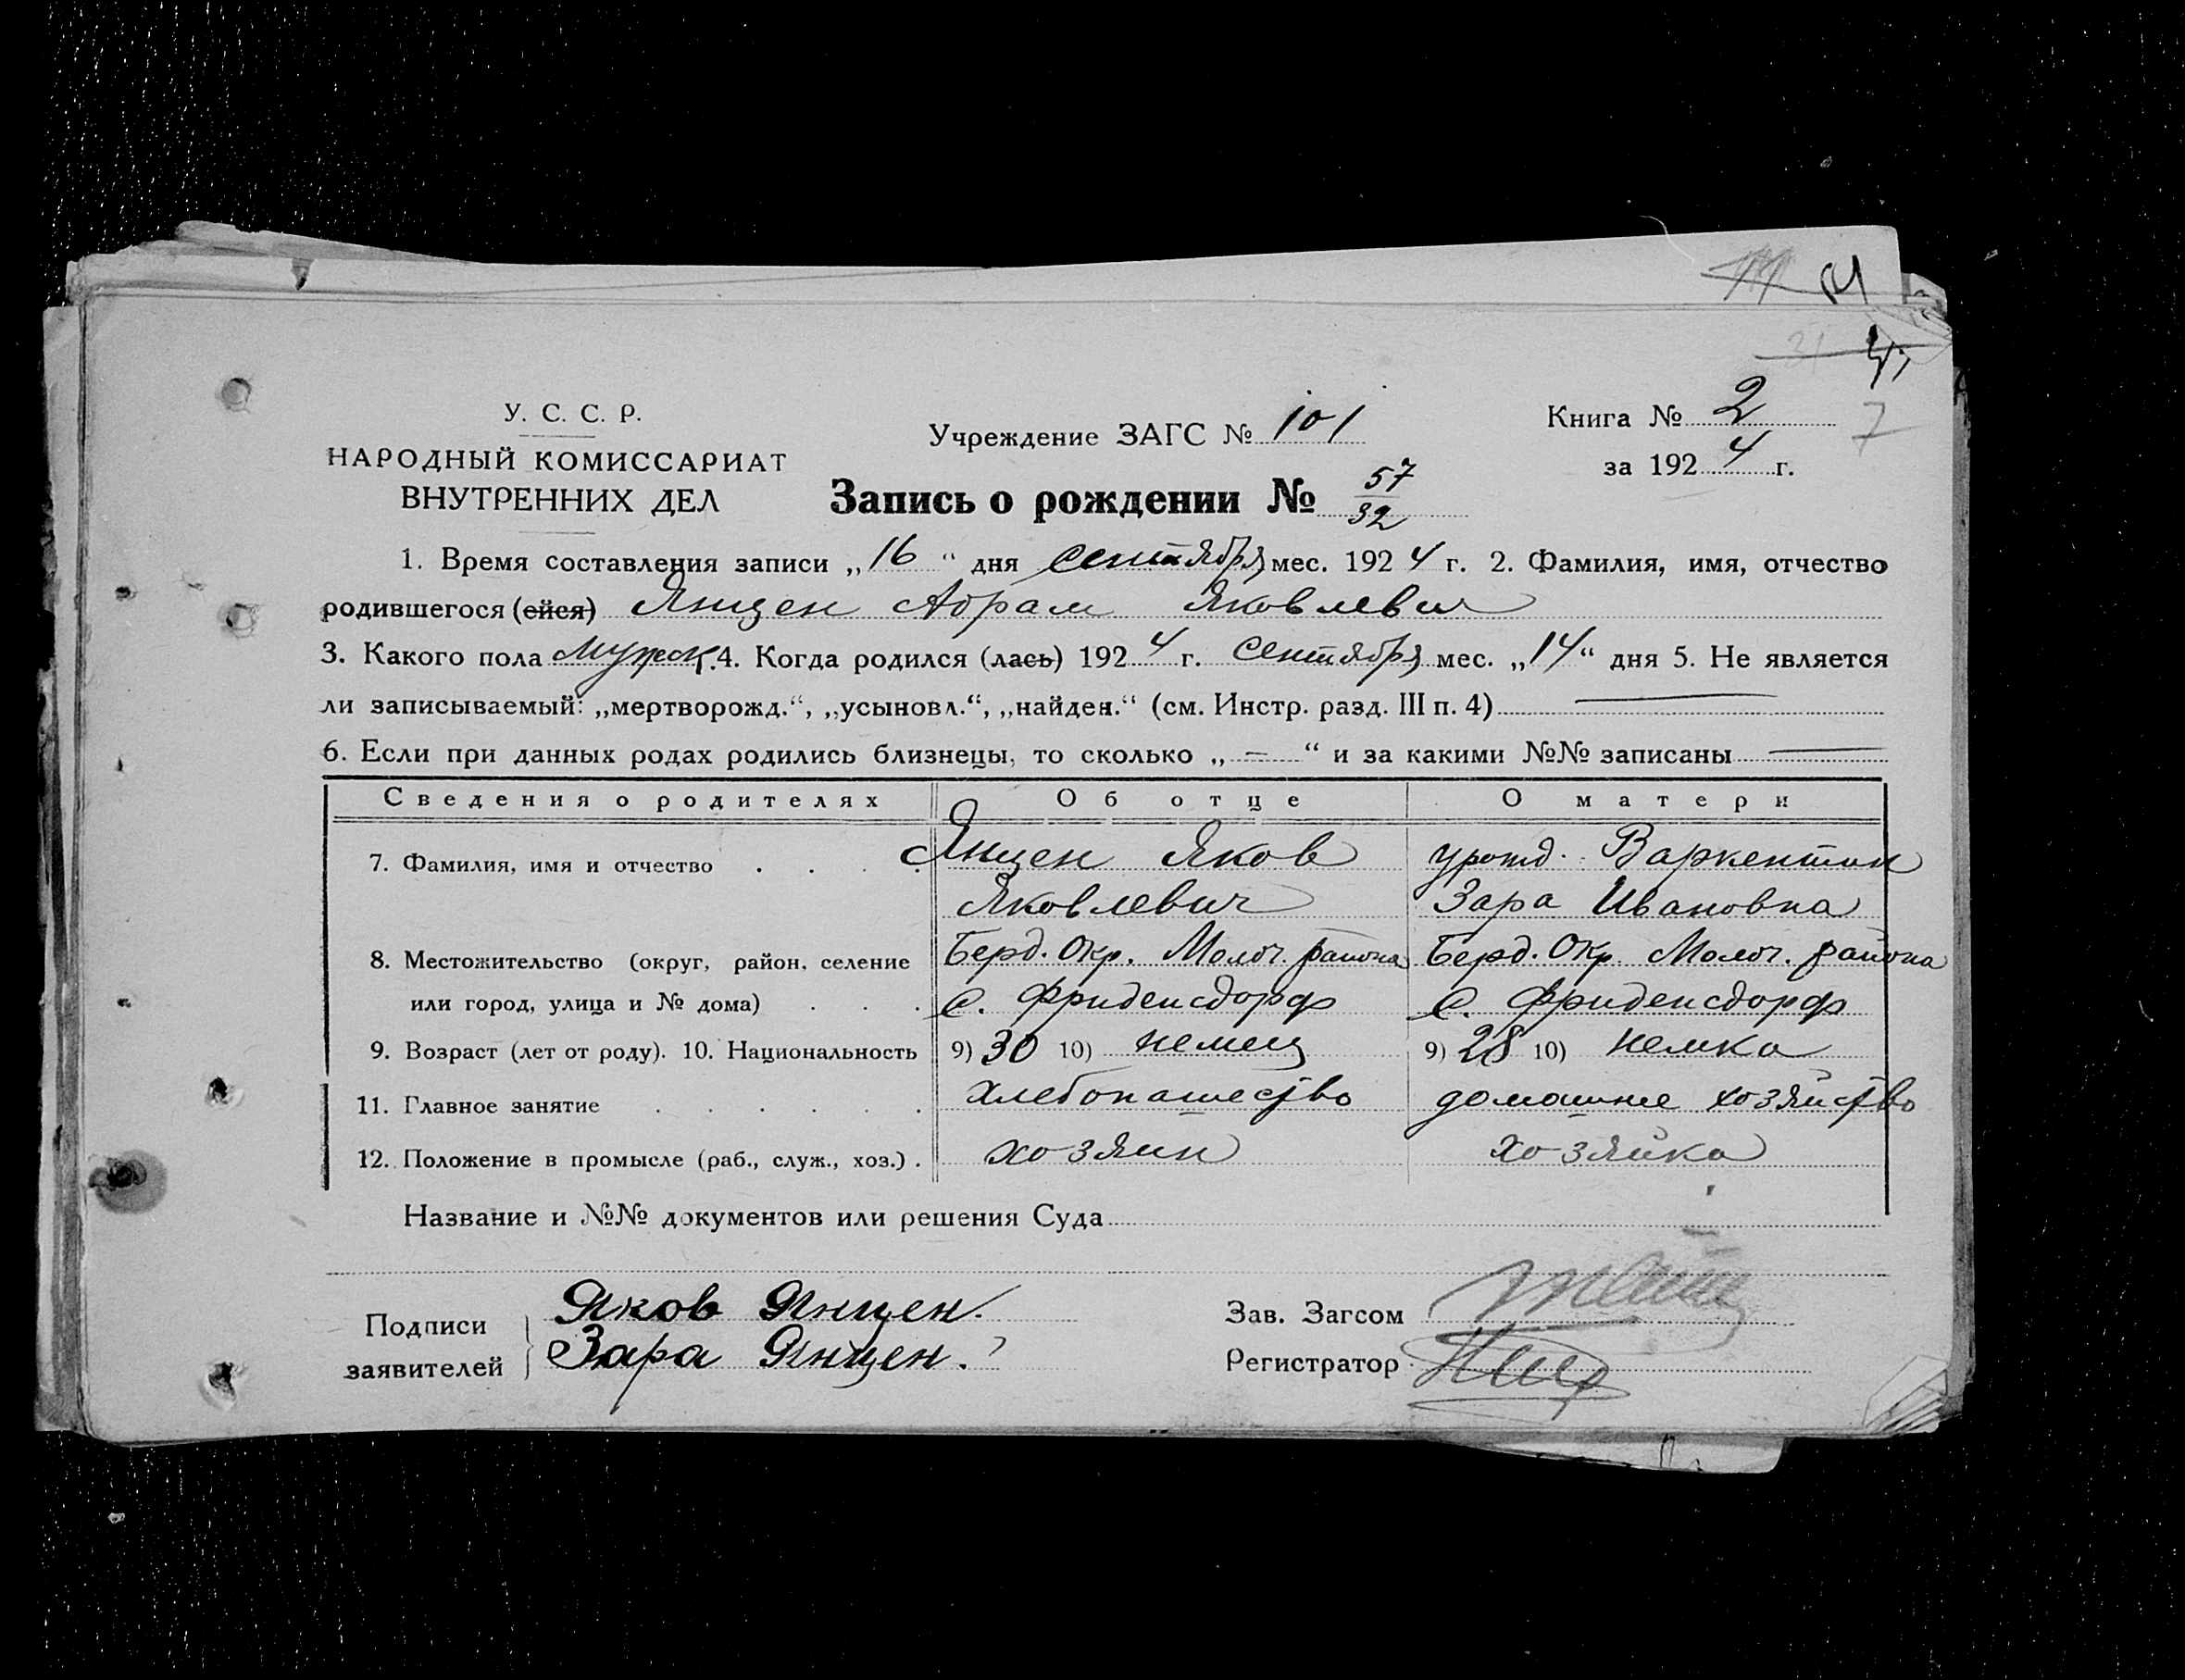 У. С. С. Р.
НАРОДНЫЙ КОМИССАРИАТ
ВНУТРЕННИХ ДЕЛ
Учреждение ЗАГС № 101
Книга № 2
7
за 1924 г.
Запись о рождении № 57/32
1. Время составления записи „16“ дня сентября мес. 1924 г. 2. Фамилия, имя, отчество
родившегося (ейся) Янцен Абрам Яковлевич
3. Какого пола мужск. 4. Когда родился (лась) 1924 г. сентября мес. „14“ дня 5. Не является
ли записываемый: „мертворожд.“, „усыновл.“, „найден.“ (см. Инстр. разд. III п. 4)
6. Если при данных родах родились близнецы, то сколько „ — “ и за какими №№ записаны —
Сведения о родителях Об отце О матери
7. Фамилия, имя и отчество . . . . Янцен Яков урожд. Варкентин
Яковлевич Зара Ивановна
8. Местожительство (округ, район, селение Берд. Окр. Молоч. района Берд. Окр. Молоч. района
или город, улица и № дома) . . . с. Фриденсдорф с. Фриденсдорф
9. Возраст (лет от роду). 10. Национальность 9) 30 10) немец 9) 28 10) немка
11. Главное занятие . . . . . . хлебопашество домашнее хозяйство
12. Положение в промысле (раб., служ., хоз.) . хозяин хозяйка
Название и №№ документов или решения Суда
Подписи
заявителей
Яков Янцен.
Зара Янцен.
Зав. Загсом
Регистратор